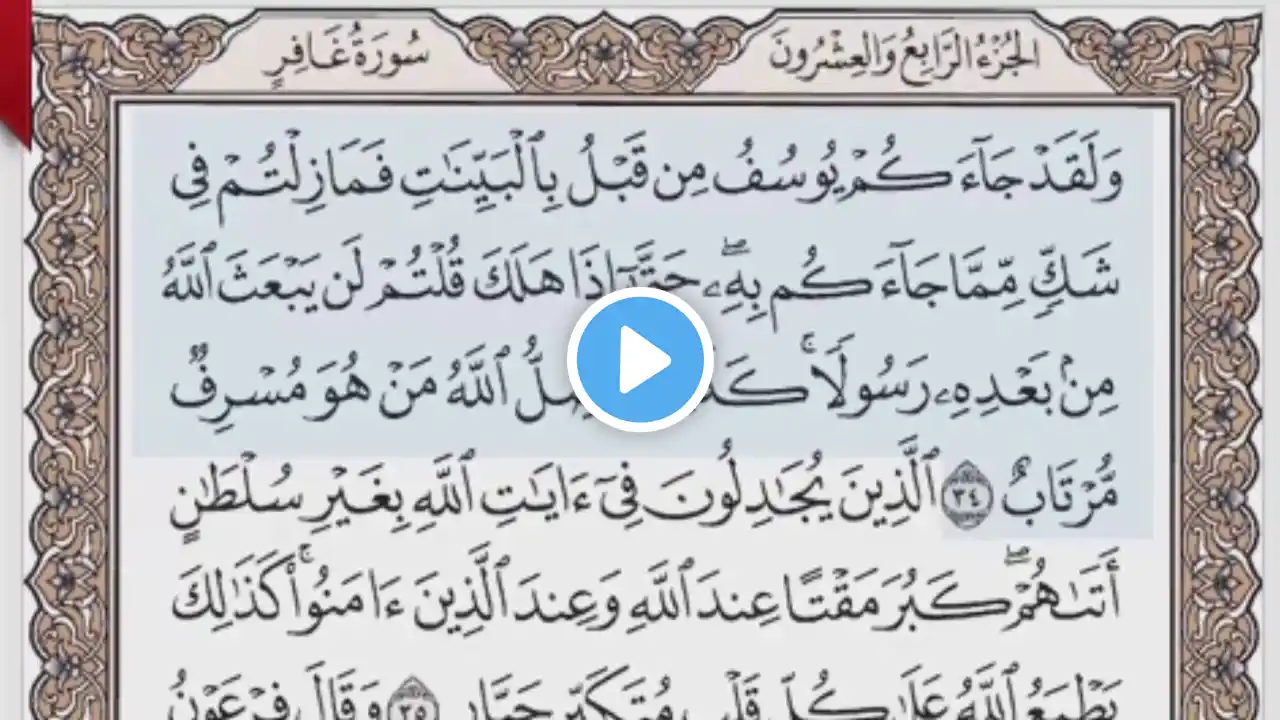 الجُزْءُ الرَّابِعُ وَالعِشْرُونَ
سُورَةُ غَافِرٍ
وَلَقَدْ جَآءَكُمْ يُوسُفُ مِن قَبْلُ بِٱلْبَيِّنَٰتِ فَمَازِلْتُمْ فِى
شَكٍّ مِّمَّا جَآءَكُم بِهِۦۖ حَتَّىٰٓ إِذَا هَلَكَ قُلْتُمْ لَن يَبْعَثَ ٱللَّهُ
مِنۢ بَعْدِهِۦ رَسُولًاۚ ٱللَّهُ مَنْ هُوَ مُسْرِفٌ
مُّرْتَابٌ ٣٤ ٱلَّذِينَ يُجَٰدِلُونَ فِىٓ ءَايَٰتِ ٱللَّهِ بِغَيْرِ سُلْطَٰنٍ
أَتَىٰهُمْۖ كَبُرَ مَقْتًا عِندَ ٱللَّهِ وَعِندَ ٱلَّذِينَ ءَامَنُوا۟ۚ كَذَٰلِكَ
يَطْبَعُ ٱللَّهُ عَلَىٰ كُلِّ قَلْبِ مُتَكَبِّرٍ جَبَّارٍ ٣٥ وَقَالَ فِرْعَوْنُ